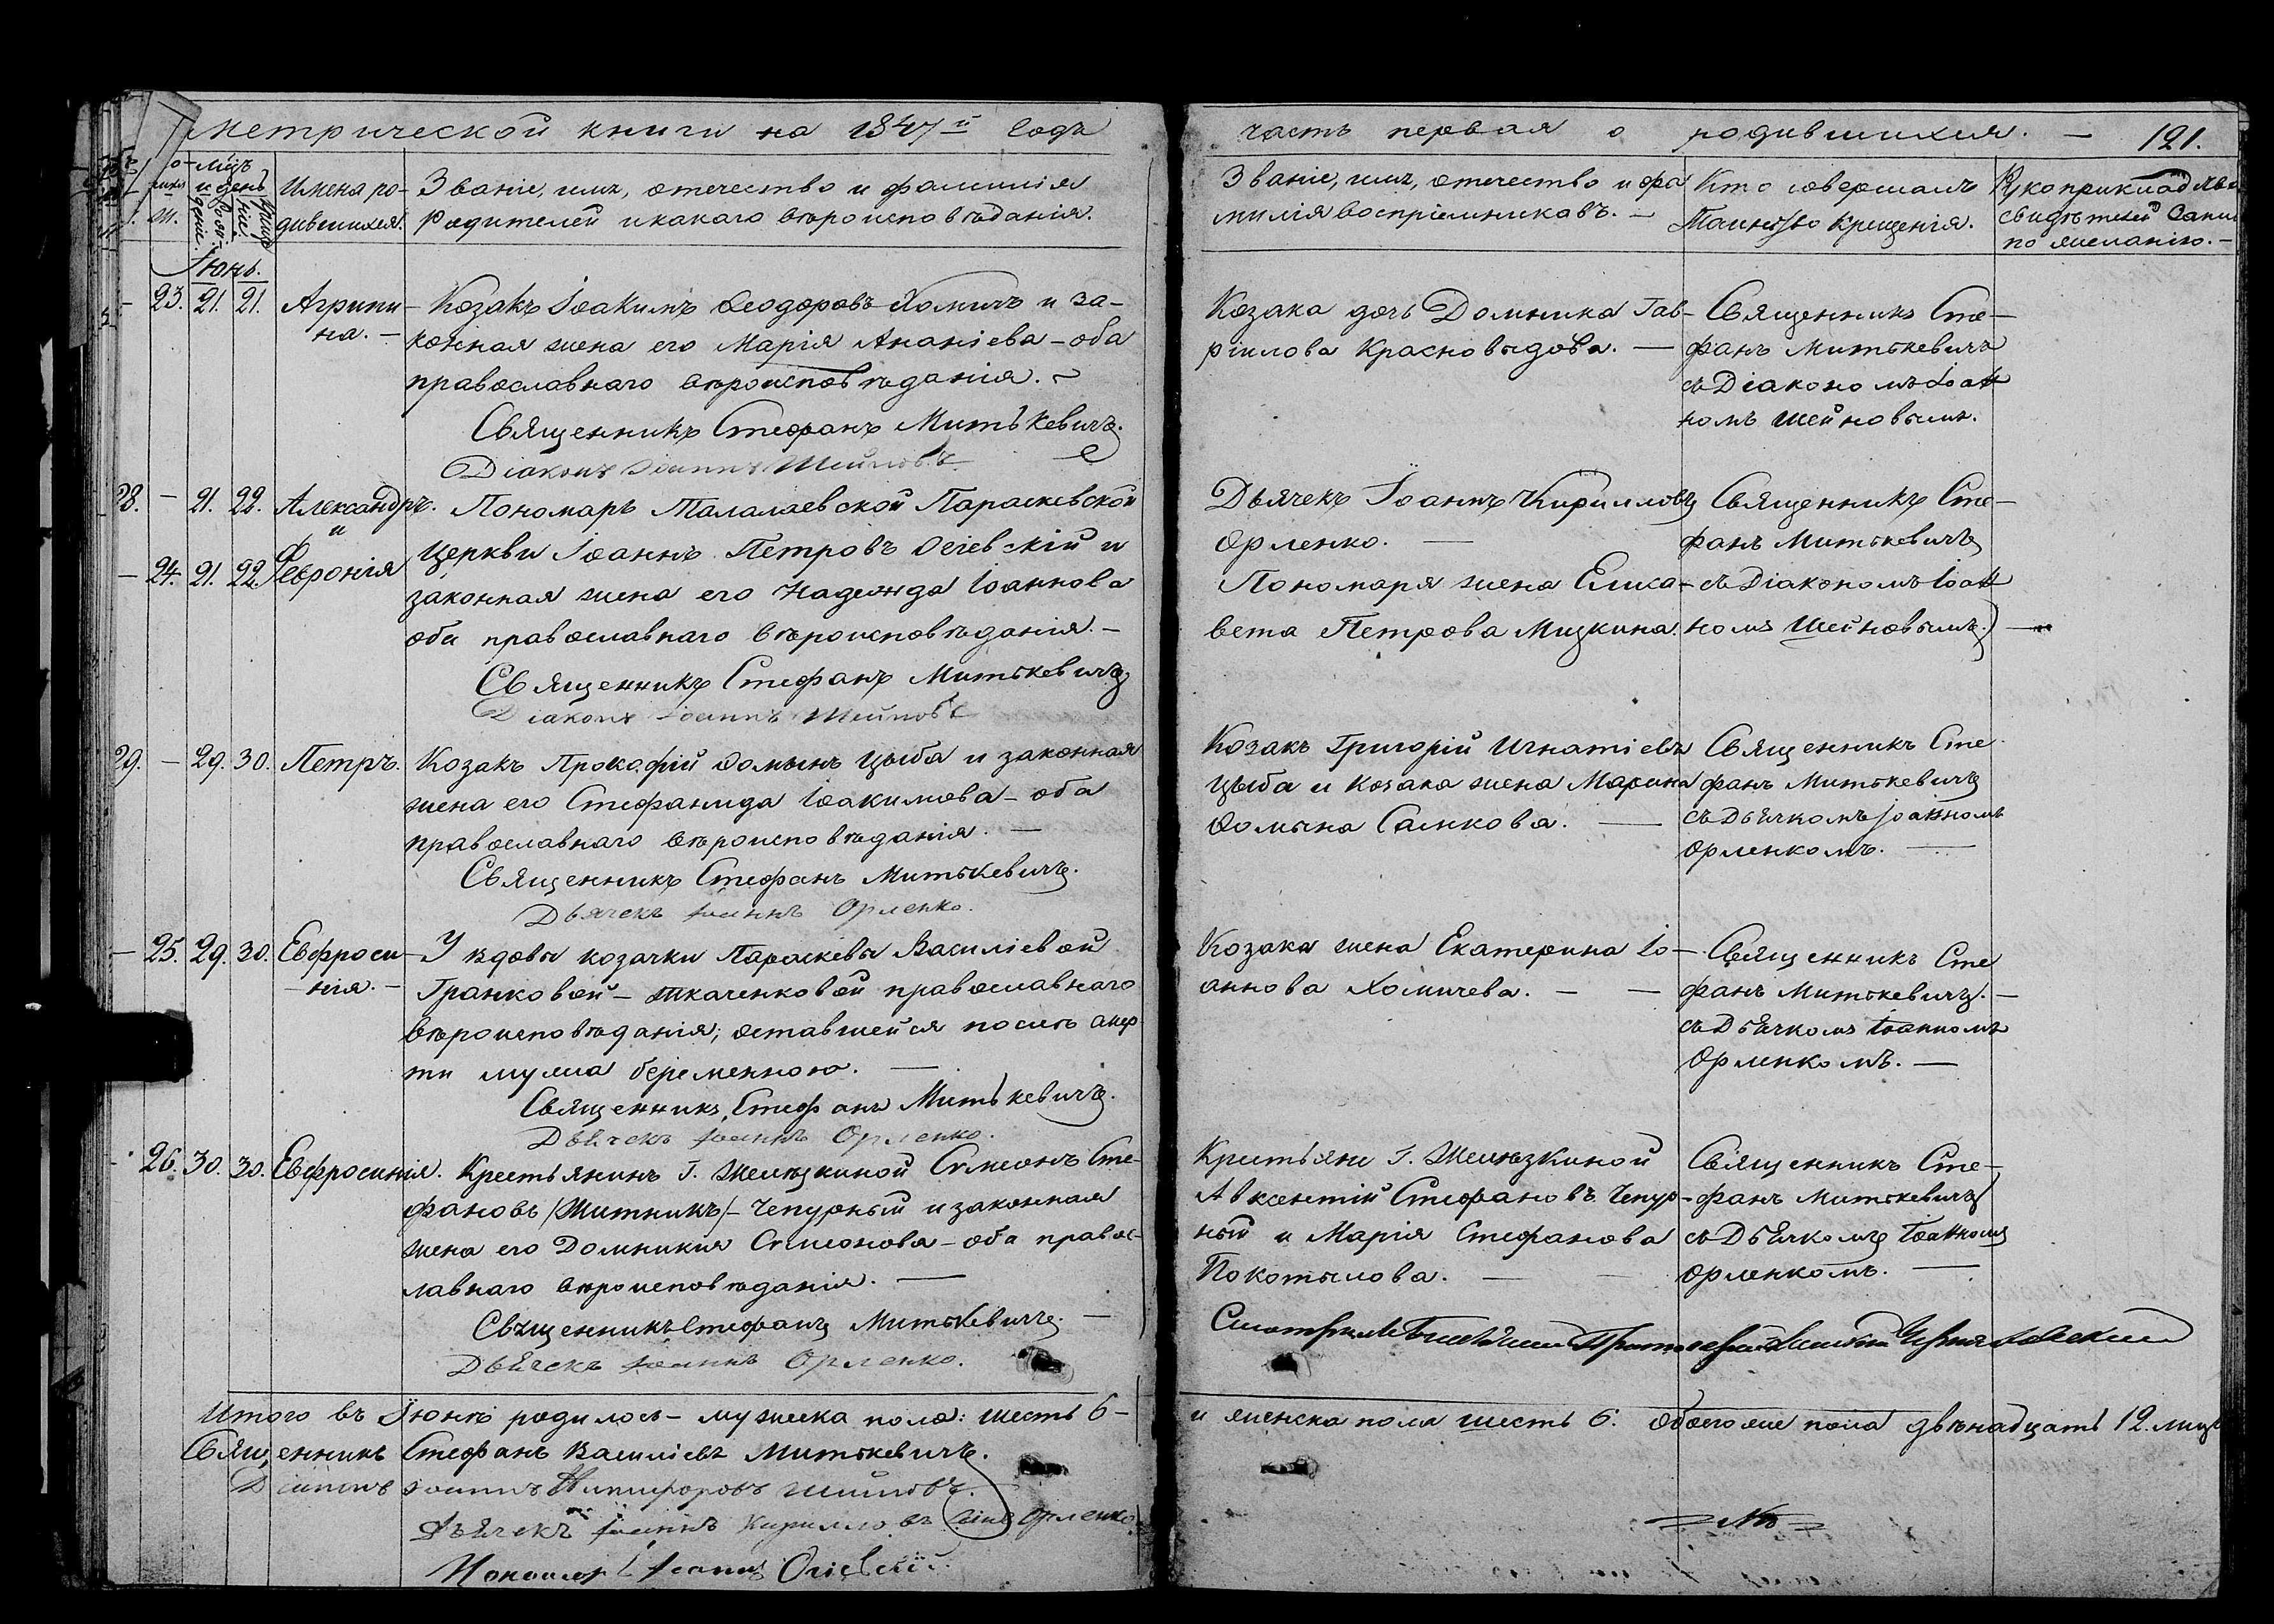 Метрической книги на 1847й годъ
часть первая о родившихся. — 121.
мцъ и день
рожденія.
крещенія.
Имена ро-
дившихся.
Званіе, имя, отечество и фамилія
Родителей и какаго вѣроисповѣданія.
Званіе, имя, отечество и фа
милія воспріемниковъ. —
Кто совершалъ
Таинство Крещенія.
Рукоприкладства
свидѣтелей запис
по желанію. —
Іюнь.
— 23. 21. 21. Агрипи-
на. —
Козакъ Іоакимъ Ѳеодоровъ Хомичъ и за-
конная жена его Марія Ананіева — оба
православнаго вѣроисповѣданія. ~
Священникъ Стефанъ Митькевичъ.
Діаконъ Іоаннъ Шейновъ
Козака дочь Домника Гав-
ріилова Красновыдова. —
Священникъ Сте-
фанъ Митькевичъ
съ Діакономъ Іоан
номъ Шейновымъ.
28. — 21. 22. Александръ.
и
— 24. 21. 22. Февронія
Пономарь Талалаевской Параскевской
Церкви Іоаннъ Петровъ Огіевскій и
законная жена его Надежда Іоаннова
оба православнаго вѣроисповѣданія. —
Священникъ Стефанъ Митькевичъ
Діаконъ Іоаннъ Шейновъ
Дьячекъ Іоаннъ Кирилловъ
Орленко. —
Пономаря жена Елиса-
вета Петрова Мизкина.
Священникъ Сте-
фанъ Митькевичъ
съ Діакономъ Іоан
номъ Шейновымъ. —
29. — 29. 30. Петръ.
Козакъ Прокофій Ѳоминъ Цыба и законная
жена его Стефанида Іоакимова — оба
православнаго вѣроисповѣданія. —
Священникъ Стефанъ Митькевичъ.
Дьячекъ Іоаннъ Орленко.
Козакъ Григорій Игнатіевъ
Цыба и козака жена Марина
Ѳомина Салкова. —
Священникъ Сте
фанъ Митькевичъ
съ Дьячкомъ Іоанномъ
Орленкомъ. —
— 25. 29. 30. Евфроси-
нія. —
У вдовы козачки Параскевы Василіевой
Гранковой — Ткаченковой православнаго
вѣроисповѣданія; оставшейся послѣ смер
ти мужа беременною. —
Священникъ Стефанъ Митькевичъ.
Дьячекъ Іоаннъ Орленко.
Козака жена Екатерина Іо-
аннова Хомичева. — —
Священникъ Сте
фанъ Митькевичъ. —
съ Дьячкомъ Іоанномъ
Орленкомъ. —
— 26. 30. 30. Евфросинія.
Крестьянинъ Г. Желѣзкиной Сѵмеонъ Сте-
фановъ /Житникъ/ — Чепурный и законная
жена его Домникия Сѵмеонова — оба правос-
лавнаго вѣроисповѣданія. —
Священникъ Стефанъ Митькевичъ. —
Дьячекъ Іоаннъ Орленко.
Крестьяне Г. Желѣзкиной
Авксентій Стефановъ Чепур-
ный и Марія Стефанова
Покотылова. —
Священникъ Сте-
фанъ Митькевичъ
съ Дьячкомъ Іоанномъ
Орленкомъ. —
Итого въ Іюнѣ родилось — мужеска пола: шесть 6 —
и женска пола шесть 6. обоего же пола двѣнадцать 12. лицъ
Священникъ Стефанъ Василіевъ Митькевичъ.
Діаконъ Іоаннъ Никифоровъ Шейновъ.
Дьячекъ Іоаннъ Кирилловъ сынъ Орленко
Пономарь Іоаннъ Огіевскій.